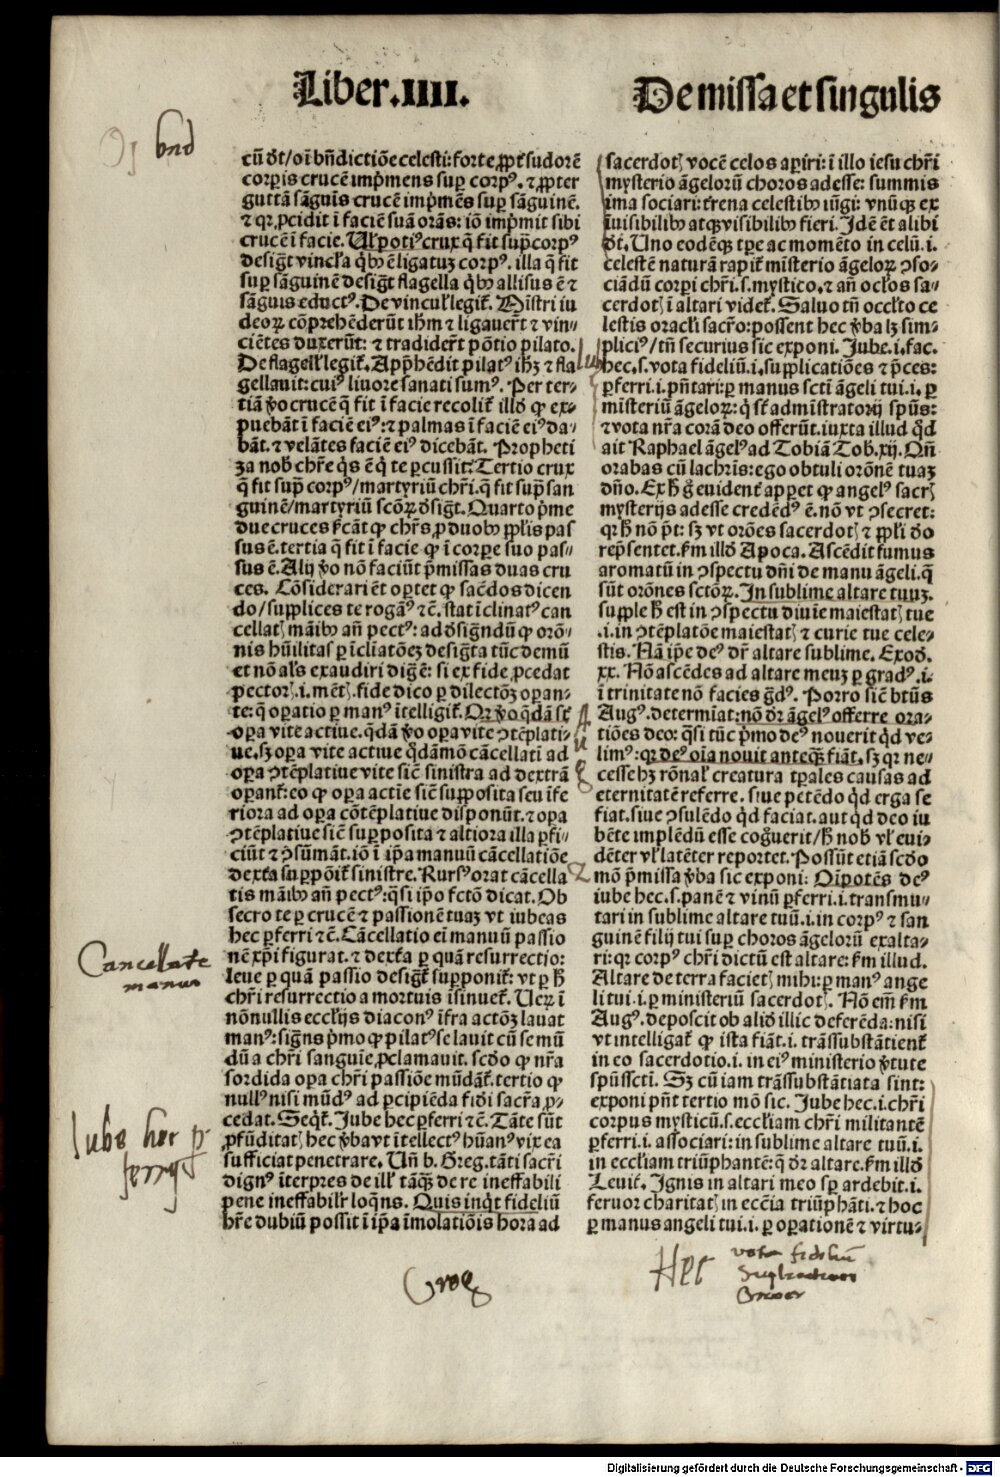 Liber.IIII.
De missa et singulis
bnd
cū d̄t/oī bn̄dictiōe celesti: forte ꝓpt̄ sudorē
corꝑis crucē imp̄mens suꝑ corpꝰ. ⁊ ꝓpter
guttā sāguis crucē imp̄mēs suꝑ sāguinē.
⁊ qꝛ ꝓcidit ī faciē suā orās: iō imp̄mit sibi
crucē ī facie. Ul̄ potiꝰ crux q̄ fit sup̄ corpꝰ
desigt̄ vincl̓a q̇bꝰ ē ligatuꝫ corpꝰ. illa q̄ fit
suꝑ sāguinē desigt̄ flagella q̇bꝰ allisus ē ⁊
sāguis eductꝰ. De vincul̓ legit̄. Mīstri iu
deoꝝ cōprehēderūt ihm̄ ⁊ ligauer̄t ⁊ vin⸗
ciētes duxerūt: ⁊ tradider̄t pōtio pilato.
De flagell̓ legit̄. App̄hēdit pilatꝰ ihꝫ ⁊ fla
gellauit: cuiꝰ liuore sanati sumꝰ. Per ter⸗
tiā v̄o crucē q̄ fit ī facie recolit̄ illd̓ ꝙ ex⸗
puebāt ī faciē eiꝰ: ⁊ palmas ī faciē eiꝰ da⸗
bāt. ⁊ velātes faciē eiꝰ dicebāt. Propheti
za nob̓ chr̄e q̇s ē q̇ te ꝑcussit. Tertio crux
q̄ fit sup̄ corpꝰ/martyriū chr̄i. q̄ fit sup̄ san
guinē/martyriū scōꝝ d̓sigt̄. Quarto p̄me
due cruces ſ̓cāt ꝙ chr̄s ꝓ duobꝰ ꝓpl̓is pas
sus ē. tertia q̄ fit ī facie ꝙ ī corꝑe suo pas⸗
sus ē. Alij v̄o nō faciūt p̄missas duas cru
ces. Cōsiderari ēt oꝑtet ꝙ sac̄dos dicen
do/supplices te rogāꝰ ⁊ c̄. stat īclinatꝰ can
cellatꝭ māibꝰ an̄ pectꝰ: ad d̓signdū ꝙ orō⸗
nis hūilitas ꝑ īcliatōeꝫ designta tūc demū
et nō al̓s exaudiri dig̓ ē: si ex fide ꝓcedat
pectorꝭ.i. mētꝭ. fide dico ꝑ dilectōꝫ oꝑan⸗
te: q̄ oꝑatio ꝑ manꝰ ītelligit̄. Qꝛ v̄o q̇dā st̄
oꝑa vite actiue. q̇dā v̄o oꝑa vite ꝯtēplati⸗
ue. sꝫ oꝑa vite actiue q̇dāmō cācellati ad
oꝑa ꝯtēplatiue vite sic̄ sinistra ad dextrā
oꝑant̄: eo ꝙ oꝑa actie sic̄ supposita seu īfe
riora ad oꝑa cōtēplatiue disponūt. ⁊ oꝑa
ꝯtēplatiue sic̄ suꝑposita ⁊ altiora illa ꝑfi⸗
ciūt ⁊ ꝯsūmāt. iō ī ip̄a manuū cācellatiōe
dext̄a suꝑpōit̄ sinistre. Rursꝰ orat cācella
tis māibꝰ an̄ pectꝰ: q̄si ip̄o fctō dicat. Ob
secro te ꝑ crucē ⁊ passionē tuaꝫ vt iubeas
hec ꝑferri ⁊ c̄. Cācellatio ei̓ manuū passio
nē xp̄i figurat. ⁊ dext̄a ꝑ quā resurrectio:
leue ꝑ quā passio desigt̄ suꝑponit̄: vt ꝑ h̄
chr̄i resurrectio a mortuis īsinuet̄. Ueꝝ ī
nōnullis eccl̓ijs diaconꝰ īfra actōꝫ lauat
manꝰ: signs p̄mo ꝙ pilatꝰ se lauit cū se mū
dū a chr̄i sanguīe ꝓclamauit. scd̓o ꝙ nr̄a
sordida oꝑa chr̄i passiōe mūdāt̄. tertio ꝙ
nullꝰ nisi mūdꝰ ad ꝑcipiēda fid̓i sacr̄a ꝓ⸗
cedat. Seqt̄. Jube hec ꝑferri ⁊ c̄. Tāte sūt
ꝓfūditatꝭ hec v̄ba vt ītellectꝰ hūanꝰ vix ea
sufficiat penetrare. Un̄ b. Greg. tāti sacr̄i
dignꝰ īterpres de ill̓ tāq̄ꝫ de re ineffabili
pene ineffabilr̓ loq̄ns. Quis inq̇t fideliū
hr̄e dubiū possit ī ip̄a īmolatiōis hora ad
sacerdotꝭ vocē celos aꝑiri: ī illo iesu chr̄i
mysterio āgelorū choros adesse: summis
ima sociari: trena celestibꝰ iūgi: vnūꝙ ex
īuisibilibꝰ atꝙ visibilibꝰ fieri. Idē ēt alibi
d̓t. Uno eodēꝙ tp̄e ac momēto in celū .i.
celestē naturā rapit̄ misterio āgeloꝝ ꝯso⸗
ciādū corpi chr̄i.s. mystico. ⁊ an̄ ocl̓os sa⸗
cerdotꝭ ī altari videt̄. Saluo tn̄ occl̓to ce
lestis oracl̓i sacr̄o: possent hec v̄ba lꝫ sim⸗
pliciꝰ/tn̄ securius sic exponi. Jube.i. fac.
hec.s. vota fideliū.i. supplicatiōes ⁊ p̄ces:
ꝑferri.i. pn̄tari: ꝑ manus scti āgeli tui.i. ꝑ
mīsteriū āgeloꝝ: q̇ st̄ admīstratorij spūs:
⁊ vota nr̄a corā deo offerūt. iuxta illud q̇d
ait Raphael āgelꝰ ad Tobiā Tob.xij. Qn̄
orabas cū lachris: ego obtuli orōnē tuaꝫ
dn̄o. Ex h̄ g̊ euident̄ apꝑet ꝙ angelꝰ sacrꝭ
mysterijs adesse credēdꝰ ē. nō vt ꝯsecret:
qꝛ h̄ nō p̄t: sꝫ vt orōes sacerdotꝭ ⁊ ꝓpl̓i d̓o
rep̄sentet. fm̄ illd̓ Apoca. Ascēdit fumus
aromatū in ꝯspectu dn̄i de manu āgeli. q̄
sūt orōnes sctōꝝ. In sublime altare tuuꝫ.
supple h̄ est in ꝯspectu diuīe maiestatꝭ tue
.i. in ꝯtēplatōe maiestatꝭ ⁊ curie tue cele⸗
stis. Nā ip̄e deꝰ dr̄ altare sublime. Exod̓.
xx. Nō ascēdes ad altare meuꝫ ꝑ gradꝰ.i.
ī trinitate nō facies gd̓ꝰ. Porro sic̄ btūs
Augꝰ. determīat: nō dr̄ āgelꝰ offerre ora⸗
tiōes deo: q̄si tūc p̄mo deꝰ nouerit q̇d ve⸗
limꝰ: qꝛ deꝰ oīa nouit anteq̄ꝫ fiāt. sꝫ qꝛ ne⸗
cesse hꝫ rōnal̓ creatura tꝑales causas ad
eternitatē referre. siue petēdo q̇d erga se
fiat. siue ꝯsulēdo q̇d faciat. aut q̇d deo iu
bēte implēdū esse cog̊uerit/h̄ nob̓ vl̓ eui⸗
dēter vl̓ latēter reportet. Possūt etiā scd̓o
mō p̄missa v̄ba sic exponi: Oīpotēs deꝰ
iube hec.s. panē ⁊ vinū ꝑferri.i. transmu⸗
tari in sublime altare tuū.i. in corpꝰ ⁊ san
guinē filij tui suꝑ choros āgelorū exalta⸗
ri: qꝛ corpꝰ chr̄i dictū est altare: fm̄ illud.
Altare de terra facietꝭ mihi: ꝑ manꝰ ange
li tui.i. ꝑ ministeriū sacerdotꝭ. Nō em̄ fm̄
Augꝰ. deposcit ob aliđ illic deferēda: nisi
vt intelligat̄ ꝙ ista fiāt.i. trāssubstātient̄
in eo sacerdotio.i. in eiꝰ ministerio v̄tute
spūsscti. Sꝫ cū iam trāssubstātiata sint:
exponi pn̄t tertio mō sic. Jube hec.i. chr̄i
corpus mysticū.s. eccl̓iam chr̄i militantē
ꝑferri.i. associari: in sublime altare tuū.i.
in eccl̓iam triūphantē: q̄ dr̄ altare. fm̄ illđ
Leuit̄. Ignis in altari meo sꝑ ardebit.i.
feruor charitatꝭ in ecc̄ia triūphāti. ⁊ hoc
ꝑ manus angeli tui.i. ꝑ oꝑationē ⁊ virtu⸗
Cancellate
manus
Jube hec p̱
ferry
Greg
Hec
vota fideliū
Digitalisierung gefördert durch die Deutsche Forschungsgemeinschaft - DFG